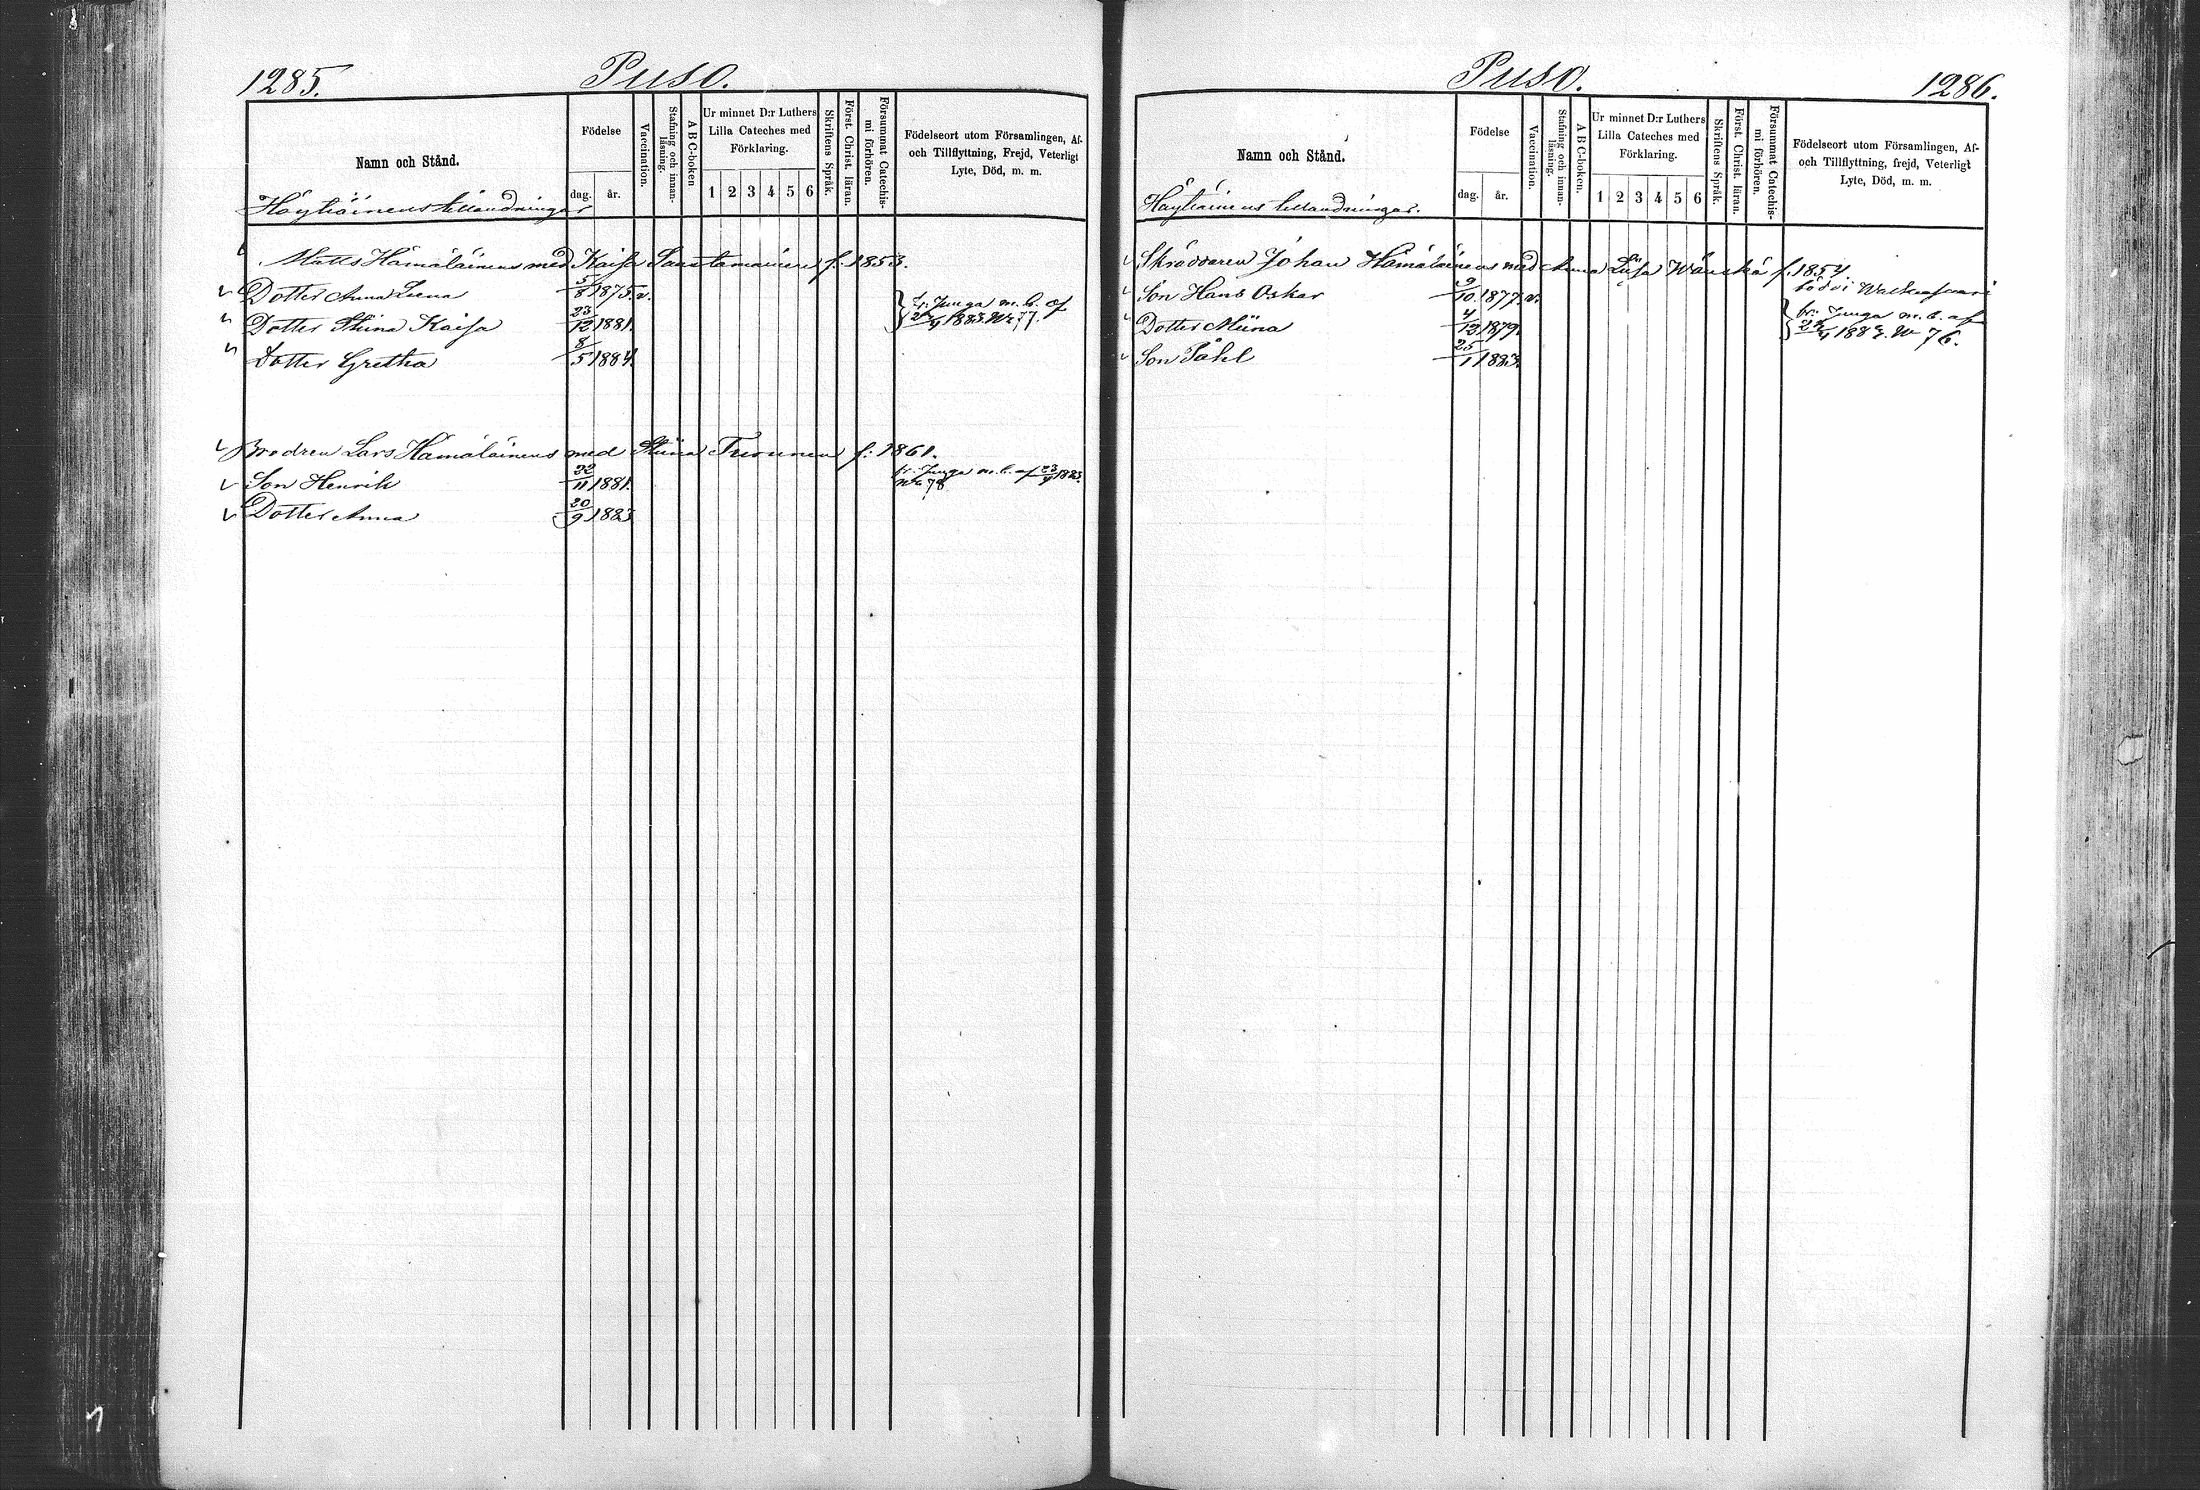 1285.
Puso.
Namn och Stånd.
Födelse
dag.
år.
Vaccination.
Stafning och innan-
läsning.
A B C-boken
Ur minnet D:r Luthers
Lilla Cateches med
Förklaring.
1 2 3 4 5 6
Skriftens Språk.
Först. Christ. läran.
Försummat Catechis-
mi förhören.
Födelseort utom Församlingen, Af-
och Tillflyttning, Frejd, Veterligt
Lyte, Död, m. m.
Höytiäinens tillandningar
Matts Hämäläinens med Kaisa f. 1853.
Dotter Anna Leena 5/8 1875. v.
Dotter Stiina Kaisa 23/12 1881.
fr. Juuga m. b. af
1883. No 77.
Dotter Gretha 8/5 1884.
Brodren Lars Hämäläinens med Stiina f: 1861.
Son Henrik 22/11 1881.
fr. Juuga m. b. af 23/4 1883.
No 78
Dotter Anna 20/9 1883
Puso.
1286.
Namn och Stånd.
Födelse
dag.
år.
Vaccination.
Stafning och innan-
läsning.
A B C-boken.
Ur minnet D:r Luthers
Lilla Cateches med
Förklaring.
1 2 3 4 5 6
Skriftens Språk.
Först. Christ. läran.
Försummat Catechis-
mi förhören.
Födelseort utom Församlingen, Af-
och Tillflyttning, frejd, Veterligt
Lyte, Död, m. m.
Höytiäinens tillandningar.
Skräddaren Johan Hämäläinens med Anna Liisa Wänskä f. 1854.
Son Hans Oskar 9/10 1877. v.
född i
Dotter Miina 4/12 1879.
fr: Juuga m. b. af
No 76.
Son Påhl 25/1 1883.